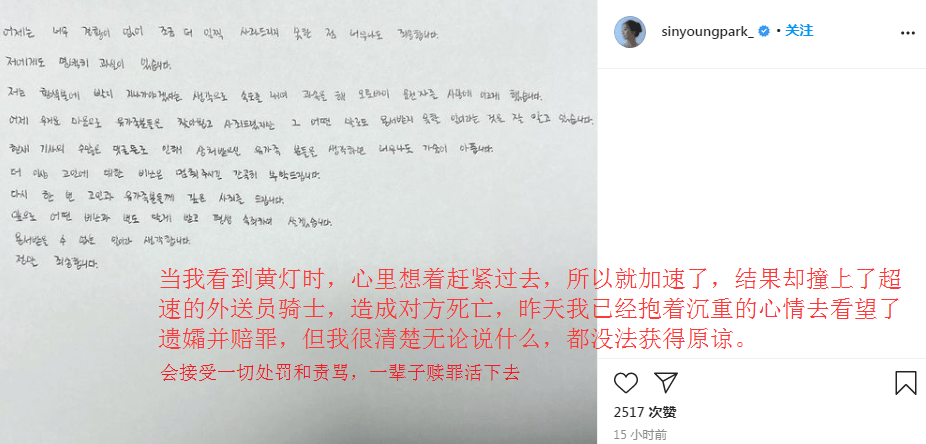 어제는 너무 경황이 없어 조금 더 일찍 사과드리지 못한 점 너무나도 죄송합니다.
저에게도 명백히 과실이 있습니다.
저는 황색불에 빨리 지나가야겠다는 생각으로 속도를 내며 과속을 해 오토바이 운전자를 사망에 이르게 했습니다.
어제 무거운 마음으로 유가족분들을 찾아뵙고 사죄드렸지만 그 어떤 말로도 용서받지 못할 일이라는 것을 잘 알고 있습니다.
현재 기사의 수많은 댓글들로 인해 상처받으실 유가족 분들을 생각하면 너무나도 가슴이 아픕니다.
더 이상 고인에 대한 비난은 멈춰주시길 간곡히 부탁드립니다.
다시 한 번 고인과 유가족분들께 깊은 사죄를 드립니다.
앞으로 어떤 비난과 벌도 달게 받고 평생 속죄하며 살겠습니다.
용서받을 수 없는 일이라 생각합니다.
정말 죄송합니다.
当我看到黄灯时，心里想着赶紧过去，所以就加速了，结果却撞上了超
速的外送员骑士，造成对方死亡，昨天我已经抱着沉重的心情去看望了
遗孀并赔罪，但我很清楚无论说什么，都没法获得原谅。
会接受一切处罚和责骂，一辈子赎罪活下去
sinyoungpark_ • 关注
2517 次赞
15 小时前